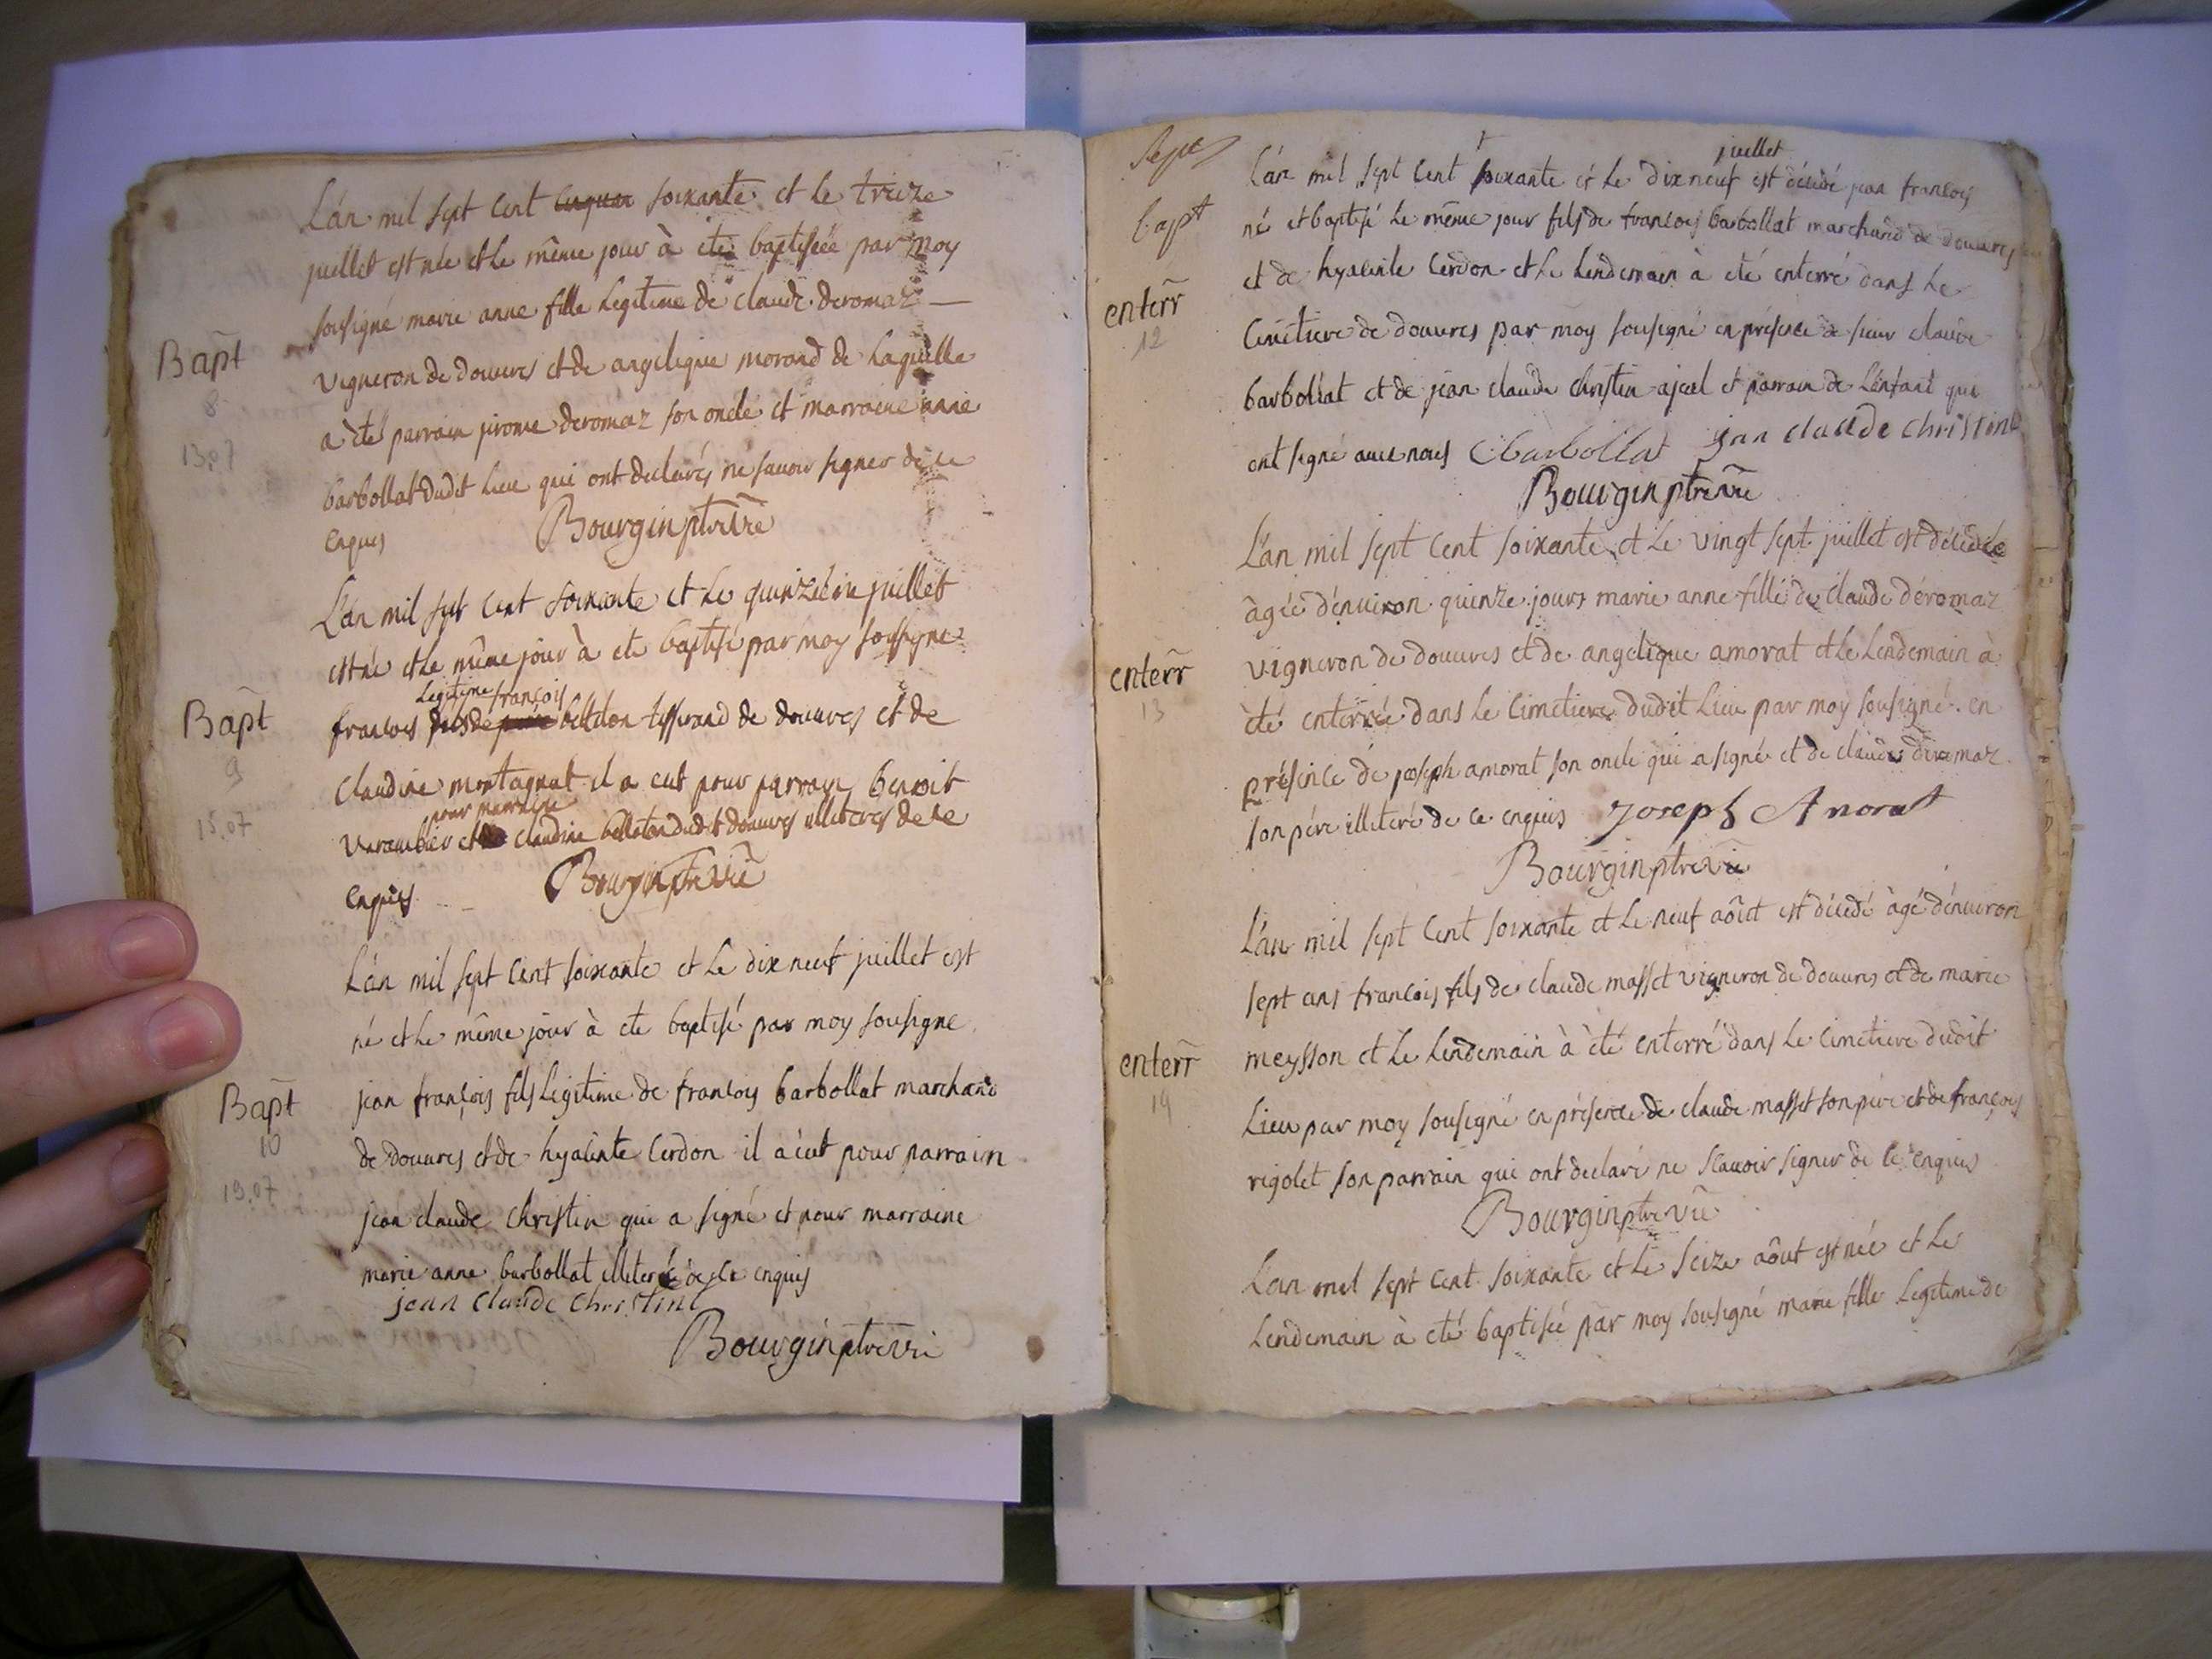 L'an mil sept cent cinquan soixante et le treize
juillet est née et le même jour à eté baptiséé par moy
sousigné marie anne fille legitime de claude deromaz
Bapt
vigneron de douvres et de angelique morand de laquelle
8
a été parrain jirome deromaz son oncle et marraine anne
13.07
barbollat dudit lieu qui ont declarés ne savoir signer de ce
enquis Bourgin ptre vic
L'an mil sept cent soixante et le quinziéme juillet
est né et le même jour à eté baptisé par moy sousigne
legitime françois
Bapt
francois fils de belleton tisserand de douvres et de
9
claudine montagnat il a eut pour parrain benoit
pour marraine
15.07
varambier et claudine belleton dudit douvres illiteres de ce
enquis Bourgin ptre vic
L'an mil sept cent soixante et le dix neuf juillet est
né et le même jour à eté baptisé par moy sousigne
Bapt
jean françois fils legitime de francois barbollat marchand
10
de douvres et de hyacinte cerdon il a eut pour parrain
19.07
jean claude christin qui a signé et pour marraine
marie anne barbollat illiterée de ce enquis
jean claude christin
Bourgin ptre vic
Sept
juillet
L'an mil sept cent soixante et le dix neuf est décédé jean francois
bapt
né et baptisé le même jour fils de francois barbollat marchand de douvres
et de hyacinte cerdon et le lendemain à eté enterré dans le
enterr
12
cimetiere de douvres par moy sousigné en présence de sieur claude
barbollat et de jean claude christin ajeul et parrain de l'enfant qui
ont signé avec nous C barbollat jean claude christin
Bourgin ptre vic
L'an mil sept cent soixante et le vingt sept juillet est décédée
âgée d'environ quinze jours marie anne fille de claude déromaz
enterr
vigneron de douvres et de angelique amorat et le lendemain à
13
été enterrée dans le cimetiere dudit lieu par moy sousigné en
présence de joseph amorat son oncle qui a signé et de claude deromaz
son pére illiteré de ce enquis Joseph Amorat
Bourgin ptre vic
L'an mil sept cent soixante et le neuf aôut est décédé âgé d'environ
sept ans francois fils de claude masset vigneron de douvres et de marie
enterr
meysson et le lendemain à été enterré dans le cimetiere dudit
14
lieu par moy sousigné en présence de claude masset son pére et de françois
rigolet son parrain qui ont declaré ne scavoir signer de ce enquis
Bourgin ptre vic
L'an mil sept cent soixante et le seize aôut est née et le
lendemain à eté baptisée par moy sousigné marie fille legitime de